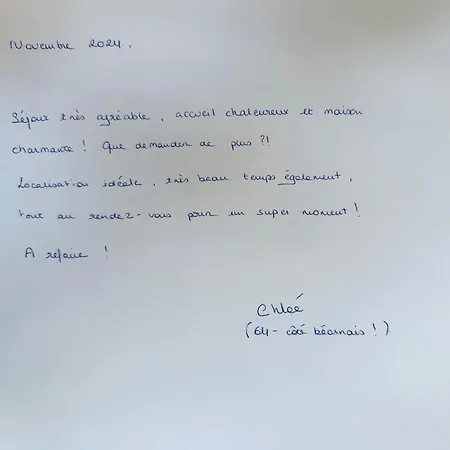 Novembre 2024.
Séjour très agréable, accueil chaleureux et maison
charmante ! Que demander de plus ?!
Localisation idéale, très beau temps également,
tout au rendez-vous pour un super moment !
A refaire !
Chloé
(64 - côté béarnais !)